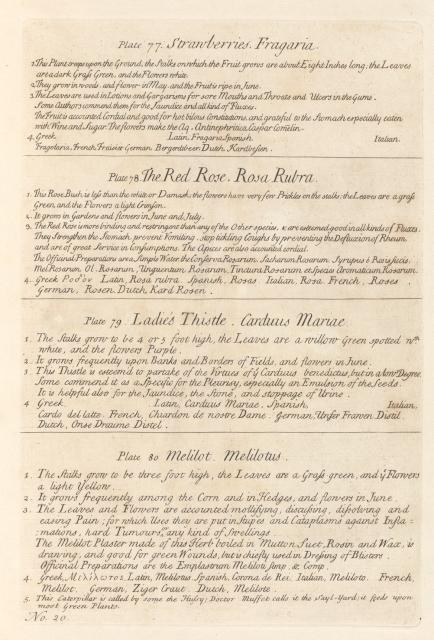 Plate 77. Strawberries. Fragaria.
1. This Plant creeps upon the Ground, the Stalks on which the Fruit grows are about Eight Inches long; the Leaves
are a dark Grass Green, and the Flowers white.
2. They grow in woods, and flower in May, and the Fruit is ripe in June.
3. The Leaves are used in Lotions and Gargarisms for sore Mouths and Throats and Ulcers in the Gums.
Some Authors commend them for the Jaundice and all kind of Fluxes.
The Fruit is accounted Cordial and good for hot bilous Constitutions, and grateful to the Stomach especially eaten
with Wine and Sugar. The flowers make the Aq. Antinephritica Caspar
4. Greek, Latin, Fragaria, Spanish, Italian,
Fragolaria, French, Fraisier German, Dutch,
Plate 78. The Red Rose. Rosa Rubra.
1. This Rose Bush is less than the white or Damask; the flowers have very few Prickles on the stalks; the Leaves are a grass
Green, and the Flowers a light Crimson.
2. It grows in Gardens and flowers in June and July.
3. The Red Rose is more binding and restringent than any of the Other species, & are esteemed good in all kinds of Fluxes.
They Strengthen the Stomach, prevent Vomiting, Stop tickling Coughs by preventing the Defluxion of Rheum
and are of great Service in Consumptions. The Apices are also accounted cordial.
The Officinal Preparations are a Simple Water the Conserva Rosarum, Sacharum Rosarum, Syrupus è Rosis siccis,
Mel Rosarum, Ol. Rosarum, Unguentum Rosarum, Tinctura Rosarum, et Species Aromaticum Rosarum.
4. Greek Latin, Rosa rubra, Spanish, Rosas Italian, Rosa. French, Roses
German, Rosen. Dutch, Rosen.
Plate 79. Ladie's Thistle. Carduus Mariae
1. The Stalks grow to be 4 or 5 foot high, the Leaves are a willow Green spotted wth.
white, and the flowers Purple.
2. It grows frequently upon Banks and Borders of Fields, and flowers in June.
3. This Thistle is esteemd to partake of the Virtues of ye Carduus benedictus, but in a low'r Degree
Some commend it as a Specific for the Pleurisy, especially an Emulsion of the Seeds.
It is helpful also for the Jaundice, the Stone, and stoppage of Urine.
4. Greek, Latin, Carduus Mariae, Spanish, Italian,
Cardo del latte. French, Chardon de nostre Dame. German, Unser Frawen Distil
Dutch, Onse Distel.
Plate 80 Melilot. Melilotus.
1. The Stalks grow to be three foot high, the Leaves are a Grass green, and ye Flowers
a light Yellow.
2. It grows frequently among the Corn and in Hedges, and flowers in June.
3. The Leaves and Flowers are accounted mollifying, discussing, dissolving and
easing Pain; for which Uses they are put in Stupes and Cataplasms against Infla=
=mations, hard Tumours, any kind of Swellings.
The Melilot Plaster made of this Herb boiled in Mutton Suet, Rosin and Wax, is
drawing, and good for green Wounds, but is chiefly used in Dressing of Blisters.
Officinal Preparations are the Emplastrum Meliloti Simp. & Comp.
4. Greek, Μελίλωτος, Latin, Melilotus, Spanish, Corona de Rei. Italian, Meliloto. French,
Melilot. German, Craut. Dutch, Melilote.
5. This Caterpillar is called by some the Doctor Muffet calls it the Sayl-Yard; it feeds upon
most Green Plants.
No. 20.